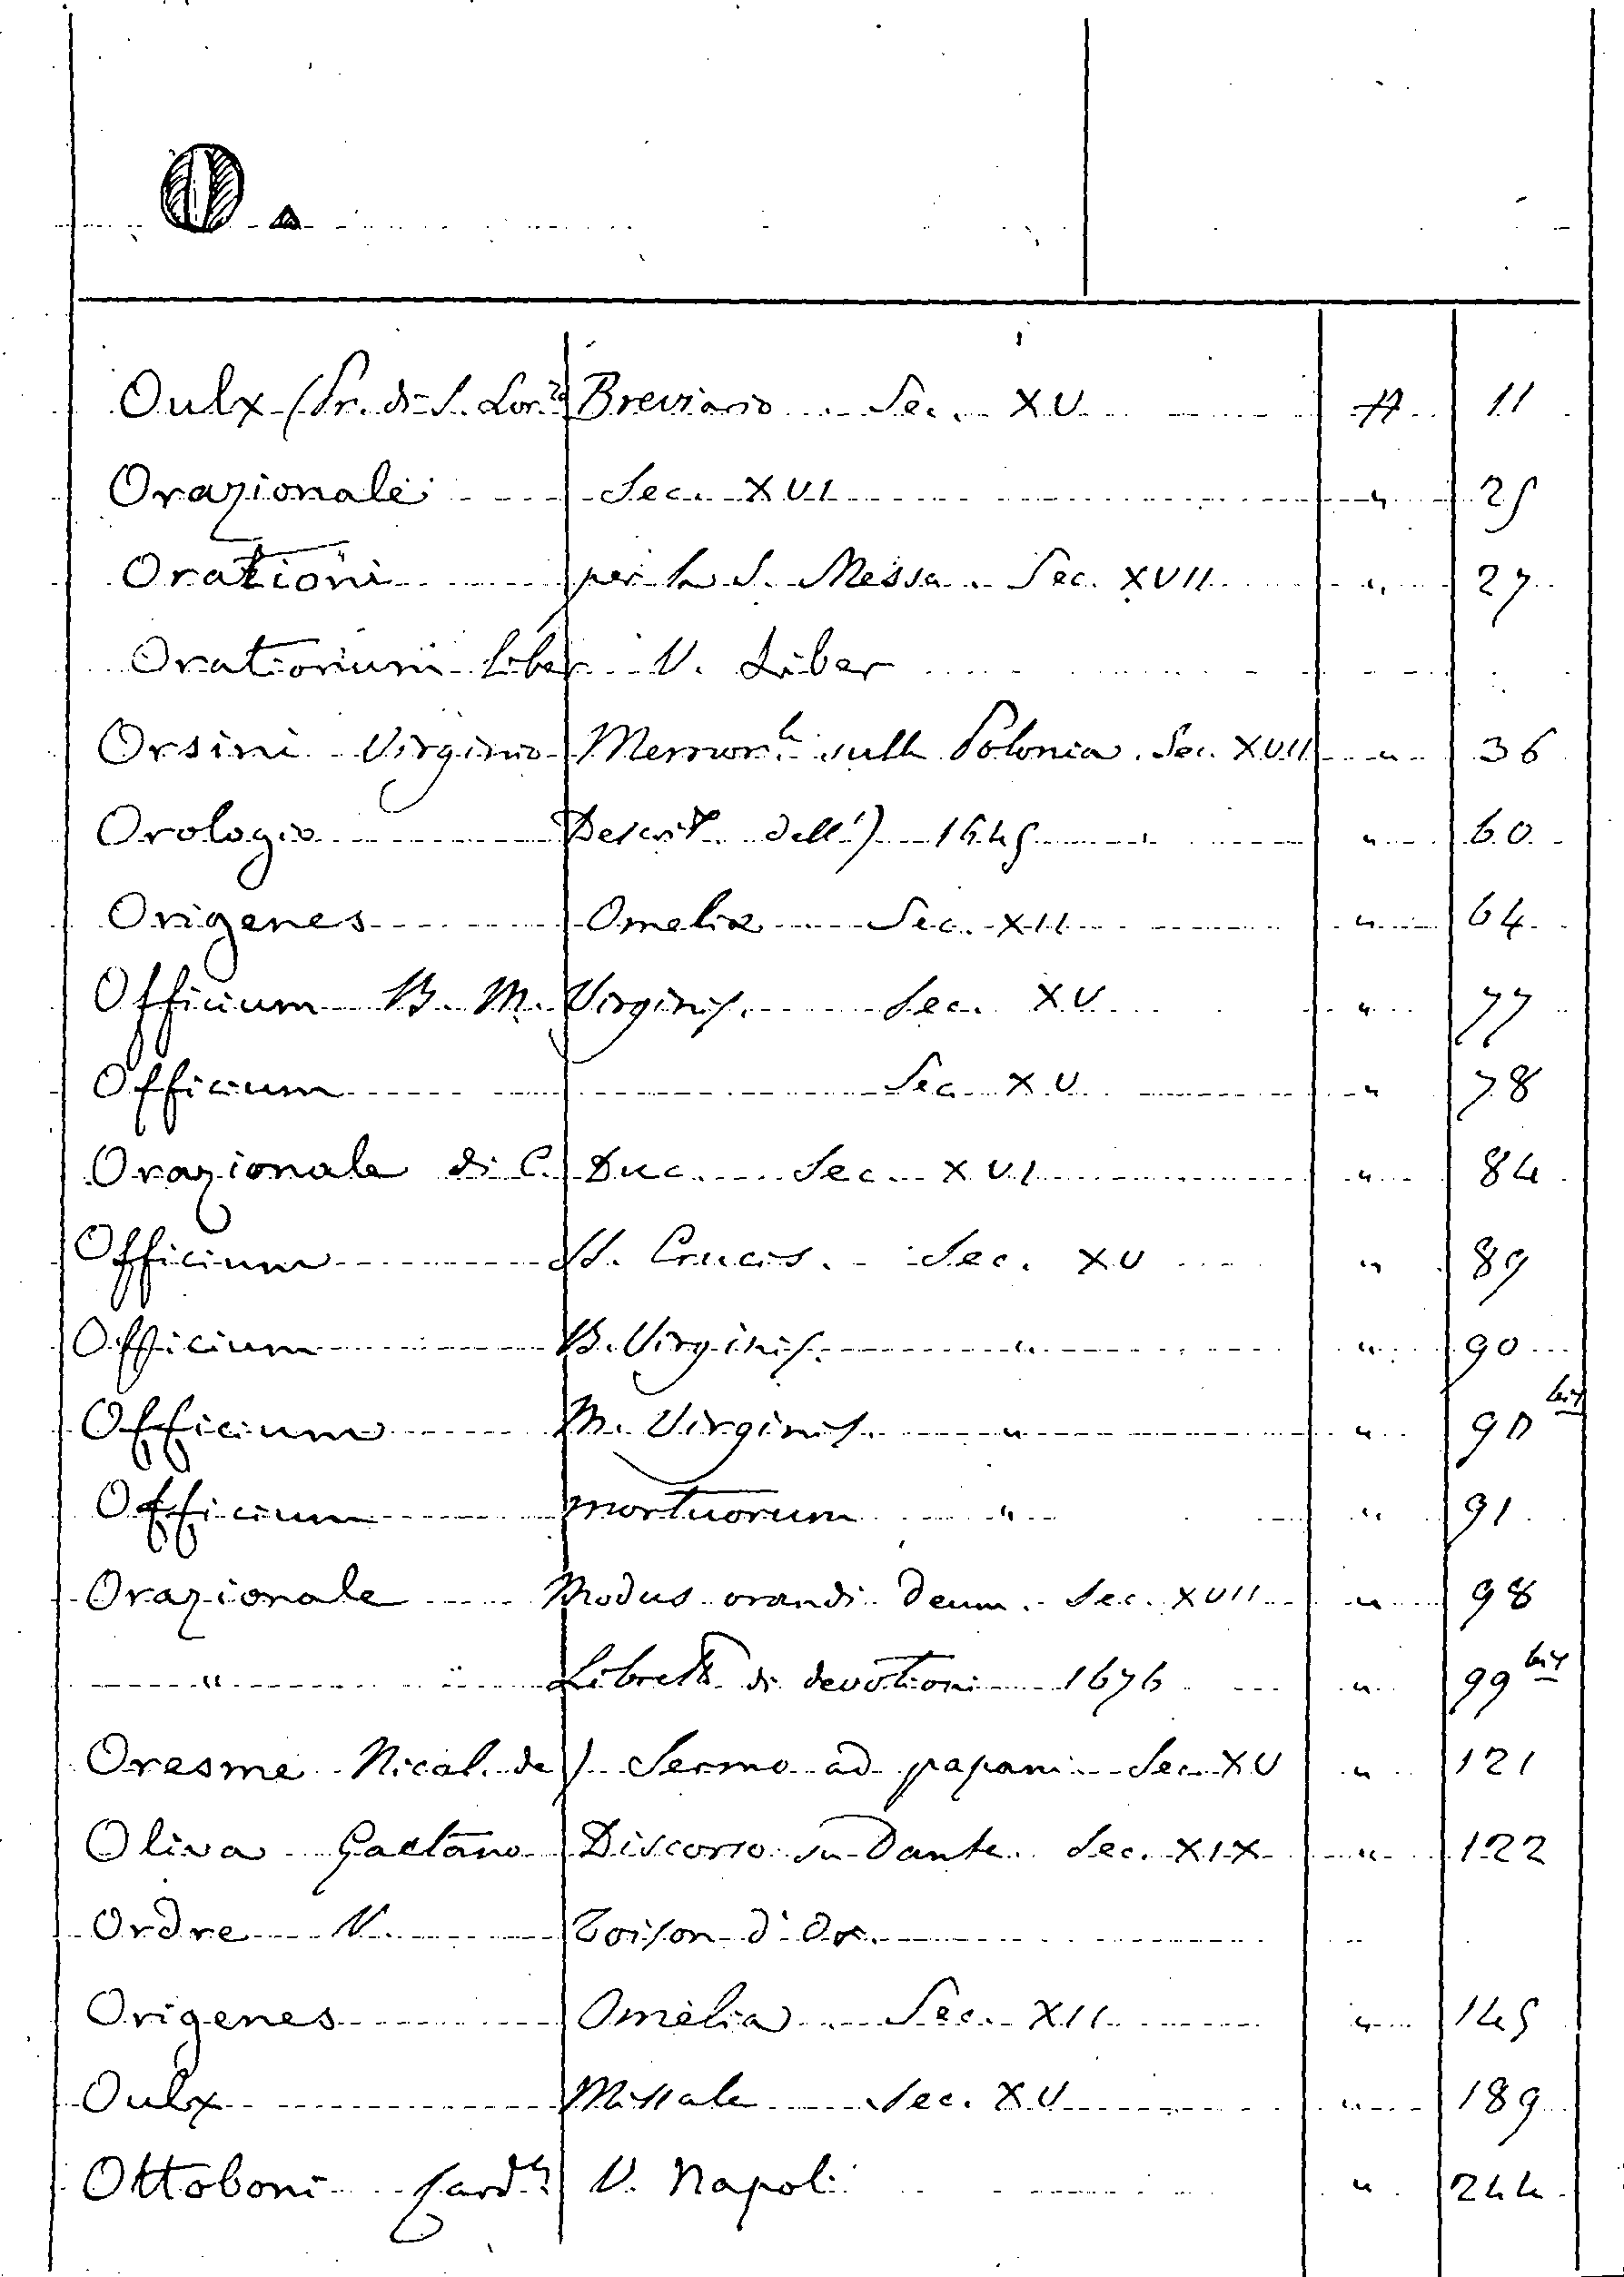 O.
Oulx (Pr. di S. Lor.zo Breviario Sec. XV A 11
Orazionale Sec. XVI " 25
Orationi per la S. Messa. Sec. XVII " 27
Orationum liber V. Liber
Orsini Virginio Memor.le sulla Polonia. Sec. XVII " 36
Orologio Descriz. dell') 1645 " 60
Origenes Omeliæ Sec. XII " 64
Officium B. M. Virginis. Sec. XV " 77
Officium Sec. XV " 78
Orazionale di C. Duc. Sec. XVI " 84
Officium SS. Crucis. Sec. XV " 89
Officium B. Virginis. " " 90
Officium M. Virginis. " " 90 bis
Officium mortuorum " " 91
Orazionale Modus orandi Deum. Sec. XVII " 98
" Libretto di devotioni 1676 " 99 bis
Oresme Nical. de) Sermo ad papam Sec. XV " 121
Oliva Gaetano Discorso su Dante. Sec. XIX " 122
Ordre V. Toison d'Or.
Origenes Omelia Sec. XII " 145
Oulx Missale Sec. XV " 189
Ottoboni Card.le V. Napoli " 244